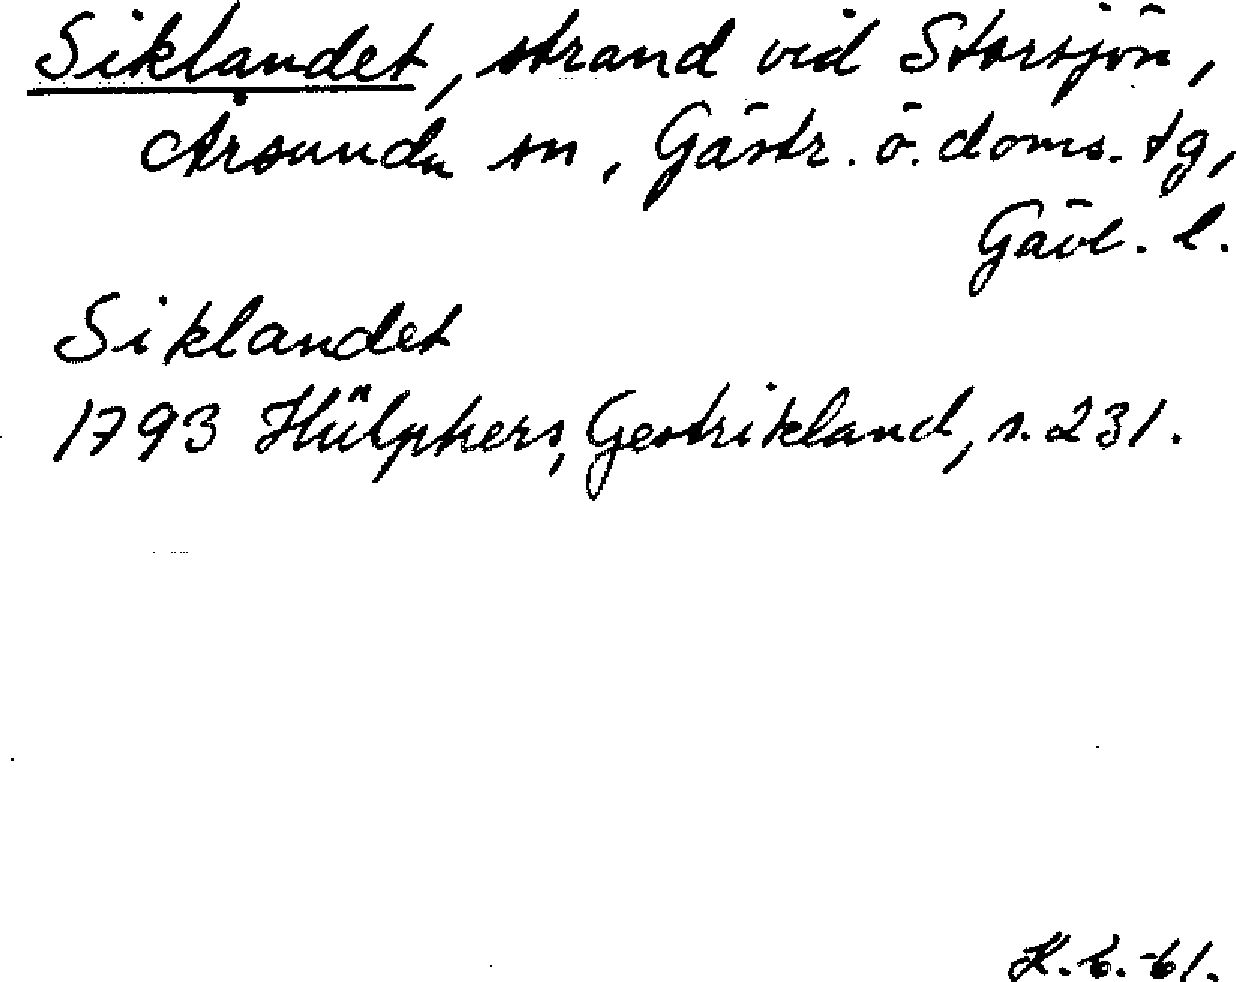 Siklandet, strand vid Storsjön,
Årsunda sn, Gästr. ö. doms. tg,
Gävl. l.
Siklandet
1793 Hülphers, Gestrikland, s. 231.